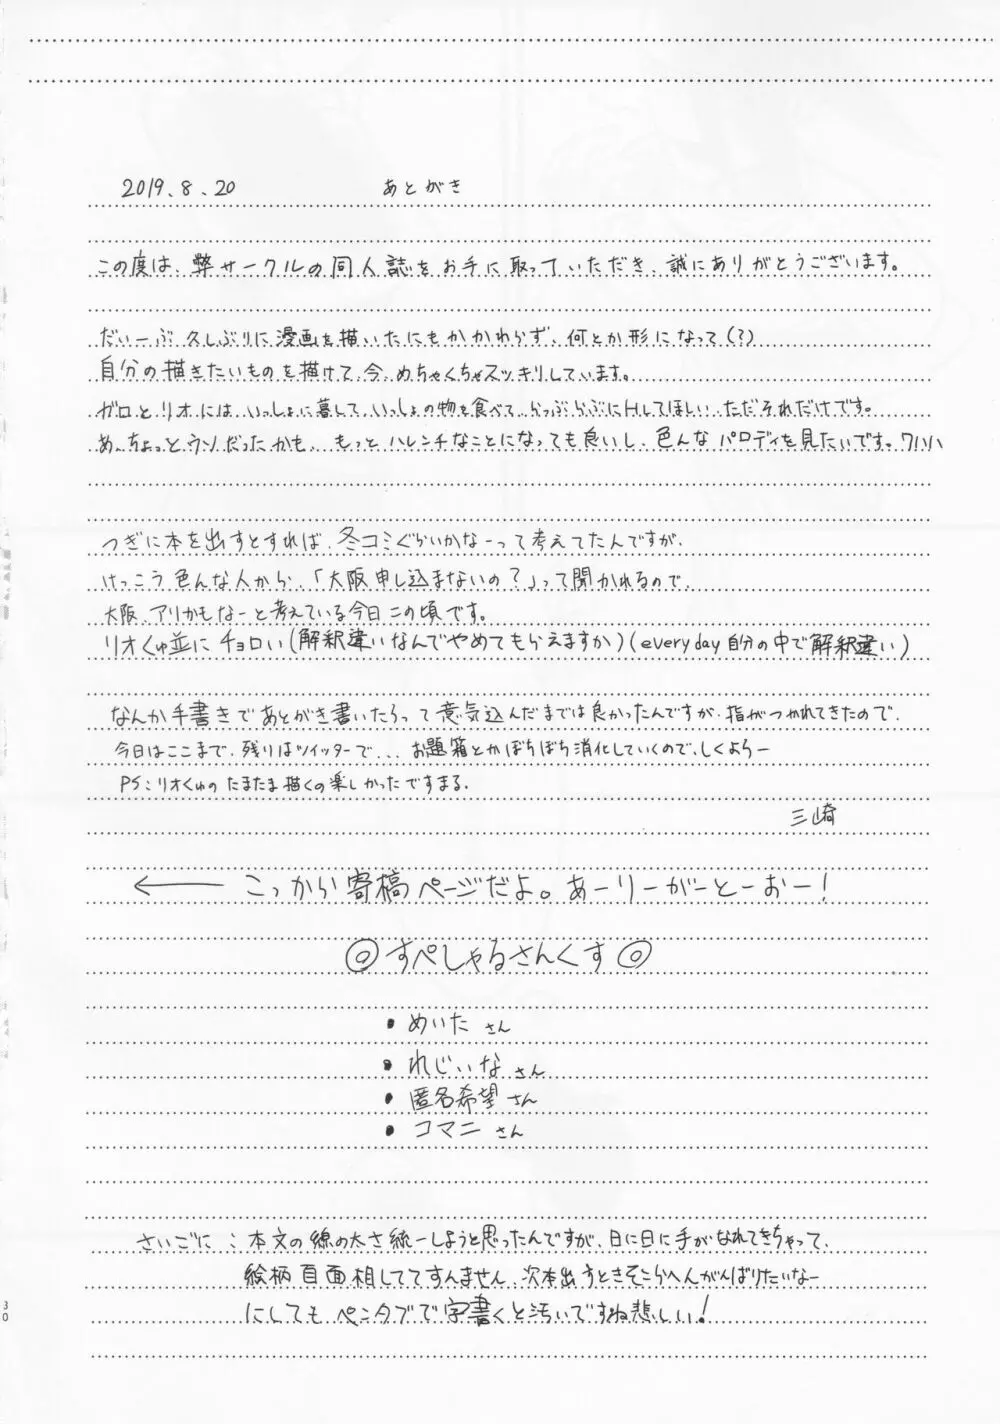 2019.8.20 あとがき
この度は、弊サークルの同人誌をお手に取っていただき、誠にありがとうございます。
だいーぶ久しぶりに漫画を描いたにもかかわらず、何とか形になって(?)
自分の描きたいものを描けて、今、めちゃくちゃスッキリしています。
ガロとリオにはいっしょに暮して、いっしょの物を食べて、らっぶらぶにHしてほしい、ただそれだけです。
あ、ちょっとウソだったかも、もっとハレンチなことになっても良いし、色んなパロディを見たいです。ワハハ
つぎに本を出すとすれば、冬コミぐらいかなーって考えてたんですが、
けっこう色んな人から、「大阪申し込まないの?」って聞かれるので、
大阪、アリかもなーと考えている今日この頃です。
リオくゅ並にチョロい(解釈違いなんでやめてもらえますか)(everyday自分の中で解釈違い)
なんか手書きであとがき書いたろって意気込んだまでは良かったんですが、指がつかれてきたので、
今日はここまで、残りはツイッターで...お題箱とかぼちぼち消化していくので、しくよろー
PS:リオくゅのたまたま描くの楽しかったですまる。
三崎
← こっから寄稿ページだよ。あーりーがーとーおー!
◎すぺしゃるさんくす◎
・めいたさん
・れじぃなさん
・匿名希望さん
・コマニさん
さいごに:本文の線の太さ統一しようと思ったんですが、日に日に手がなれてきちゃって、
絵柄百面相しててすんません、次本出すときそこらへんがんばりたいなー
にしてもペンタブで字書くと汚いですね悲しい!
30